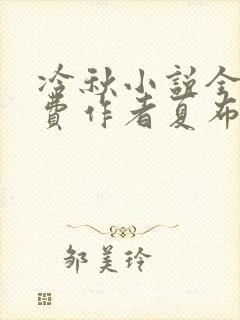 冷秋小说全
費作者夏布
邹美玲